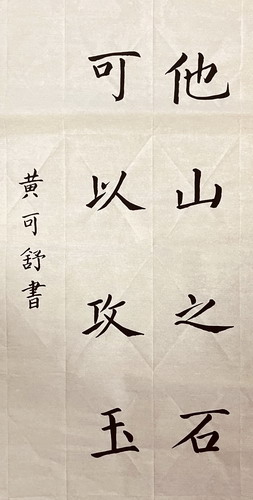 他山之石
可以攻玉
黄可舒書